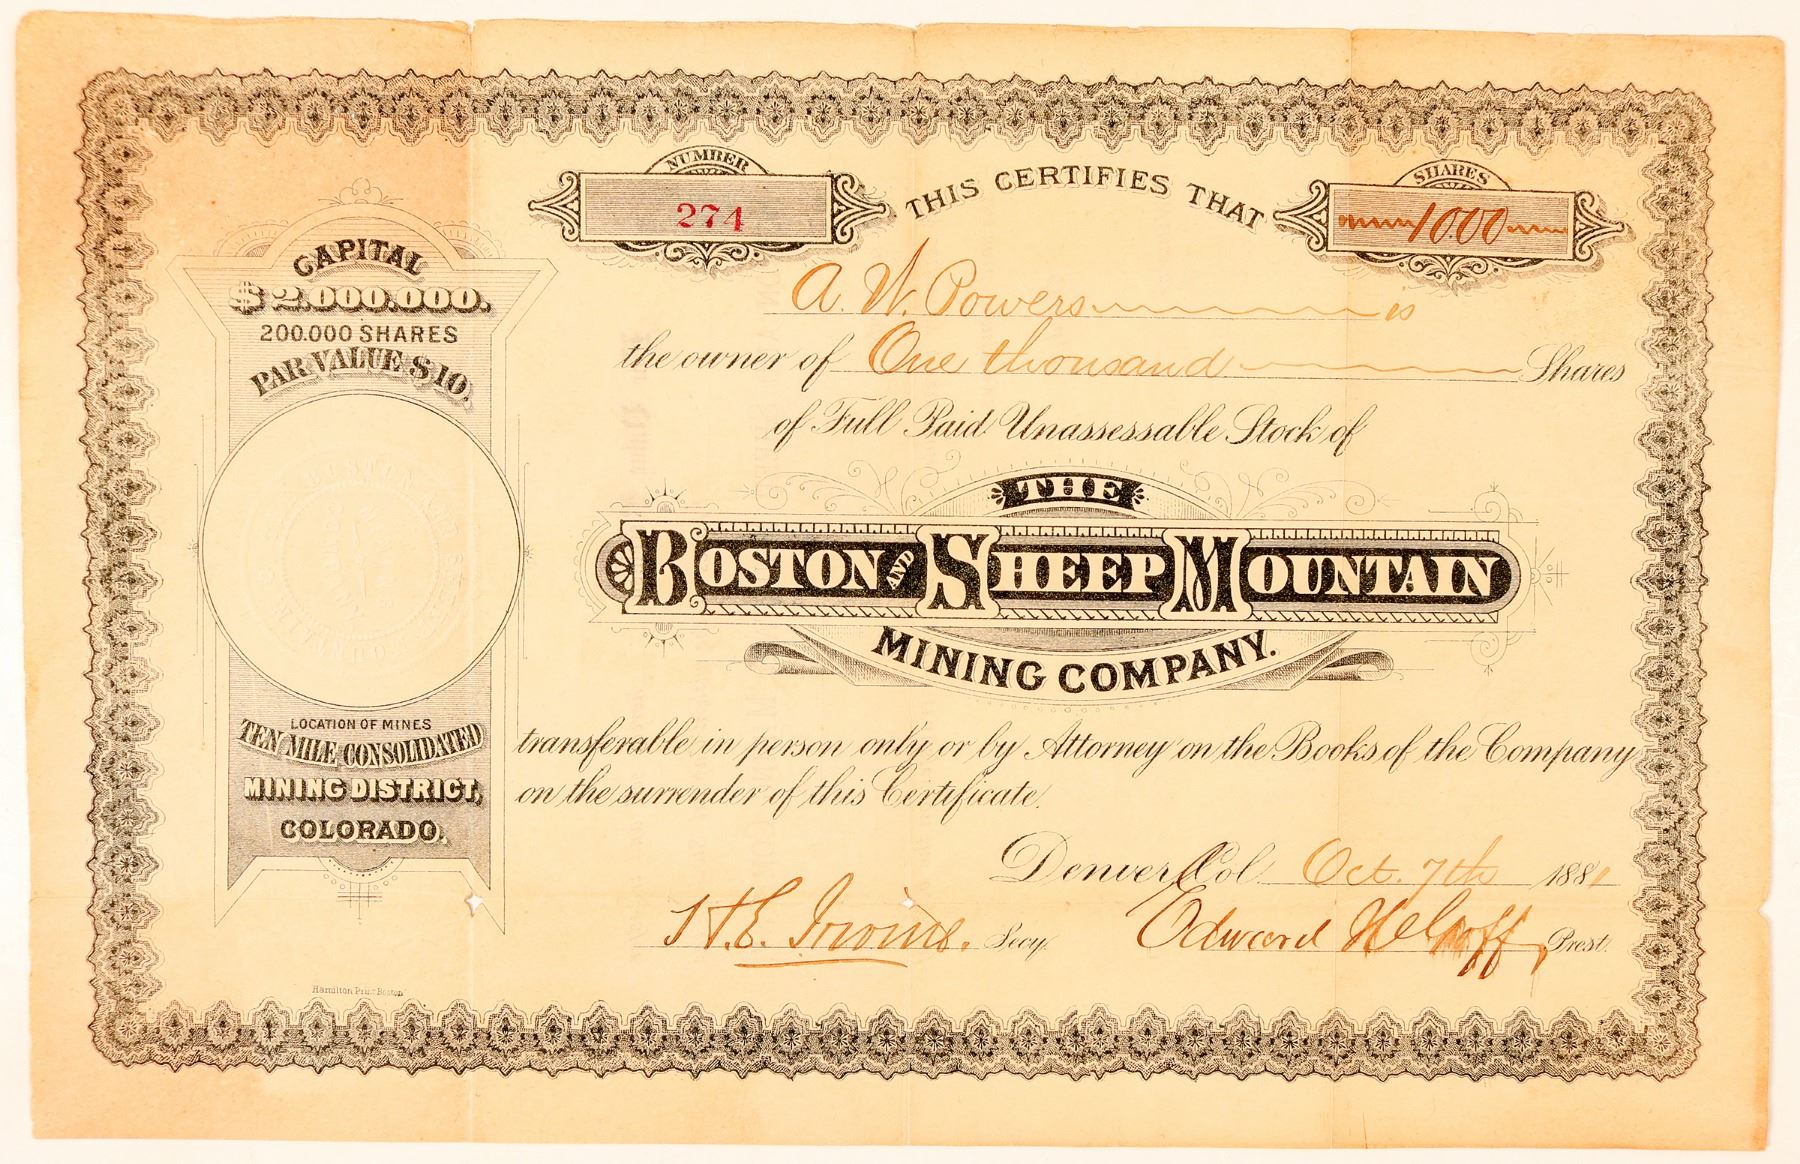 NUMBER
274
THIS CERTIFIES THAT
SHARES
1000
A. W. Powers is
the owner of One thousand Shares
of Full Paid Unassessable Stock of
THE
BOSTON AND SHEEP MOUNTAIN
MINING COMPANY.
transferable in person only or by Attorney on the Books of the Company
on the surrender of this Certificate.
Denver, Col. Oct. 7th 1881
H.E. Irvine. Secy. Edward Prest.
CAPITAL
$2.000.000.
200.000 SHARES
PAR VALUE $10.
LOCATION OF MINES
TEN MILE CONSOLIDATED
MINING DISTRICT,
COLORADO.
Hamilton Print Boston